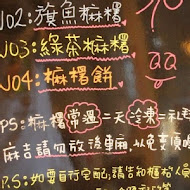 NO2:旗魚麻糬
NO3:綠茶麻糬
NO4:麻糬餅
PS:麻糬常溫=二天/冷凍=
麻吉請勿放後車廂,以免變
P.S:如要自行宅配,請告知櫃枱人